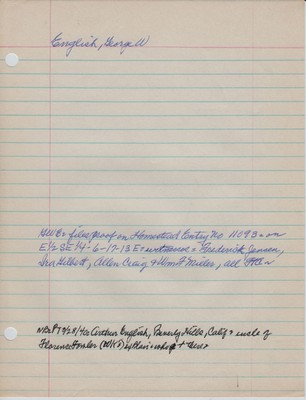 English, George W
GWE= files proof on Homestead Entry No 11093= on
E½ SE ¼ - 6-17-13 E= witnesses = Frederick Jensen,
Ira Hilbert, Allen Craig & Wm F Miller, all
Arthur English, Beverly Hills, Calif = uncle of
Florence Fowler